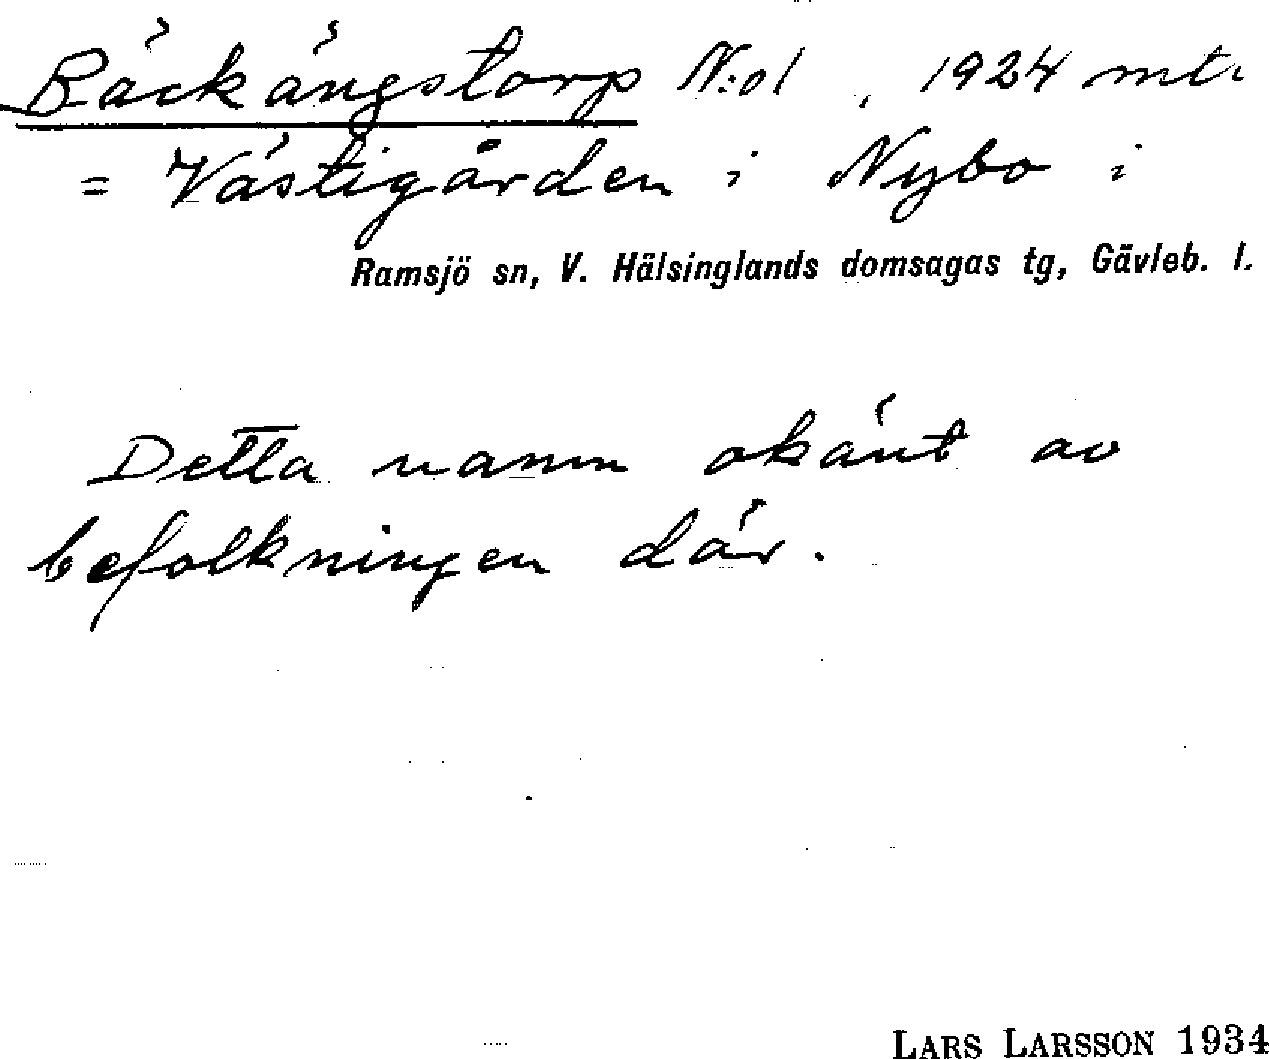 Bäckängstorp N:o 1, 1924 mt.
= Västigården i Nybo i
Ramsjö sn, V. Hälsinglands domsagas tg, Gävleb. l.
Detta namn okänt av
befolkningen där.
LARS LARSSON 1934